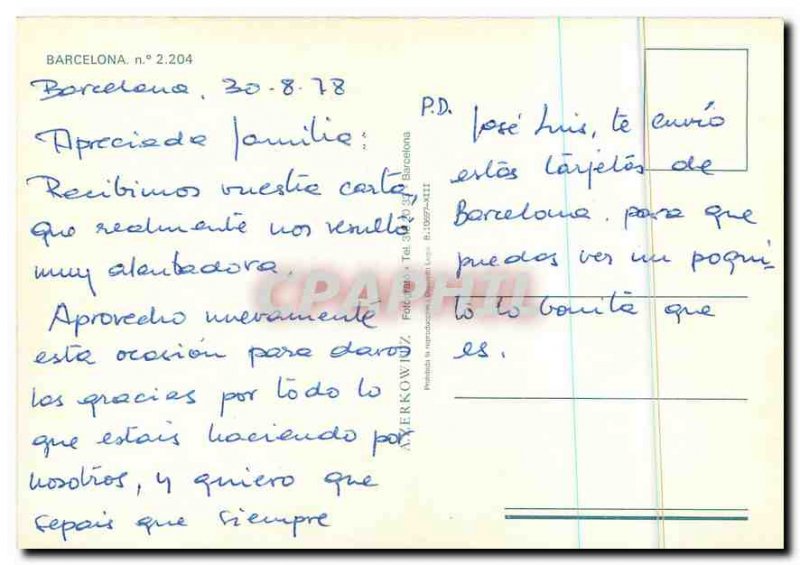 BARCELONA. n.º 2.204
Barcelona, 30-8-78
Apreciada familia:
Recibimos vuestra carta,
que realmente nos resulta
muy alentadora.
Aprovecho nuevamente
esta ocasión para daros
las gracias por todo lo
que estais haciendo por
nosotros, y quiero que
sepais que siempre
A. ZERKOWITZ Fotógrafo • Tel. Barcelona
Prohibida la reproducción
CPAPHIL
P.D. José Luis, te envío
estas tarjetas de
Barcelona. para que
puedas ver un poqui-
to lo bonita que
es.